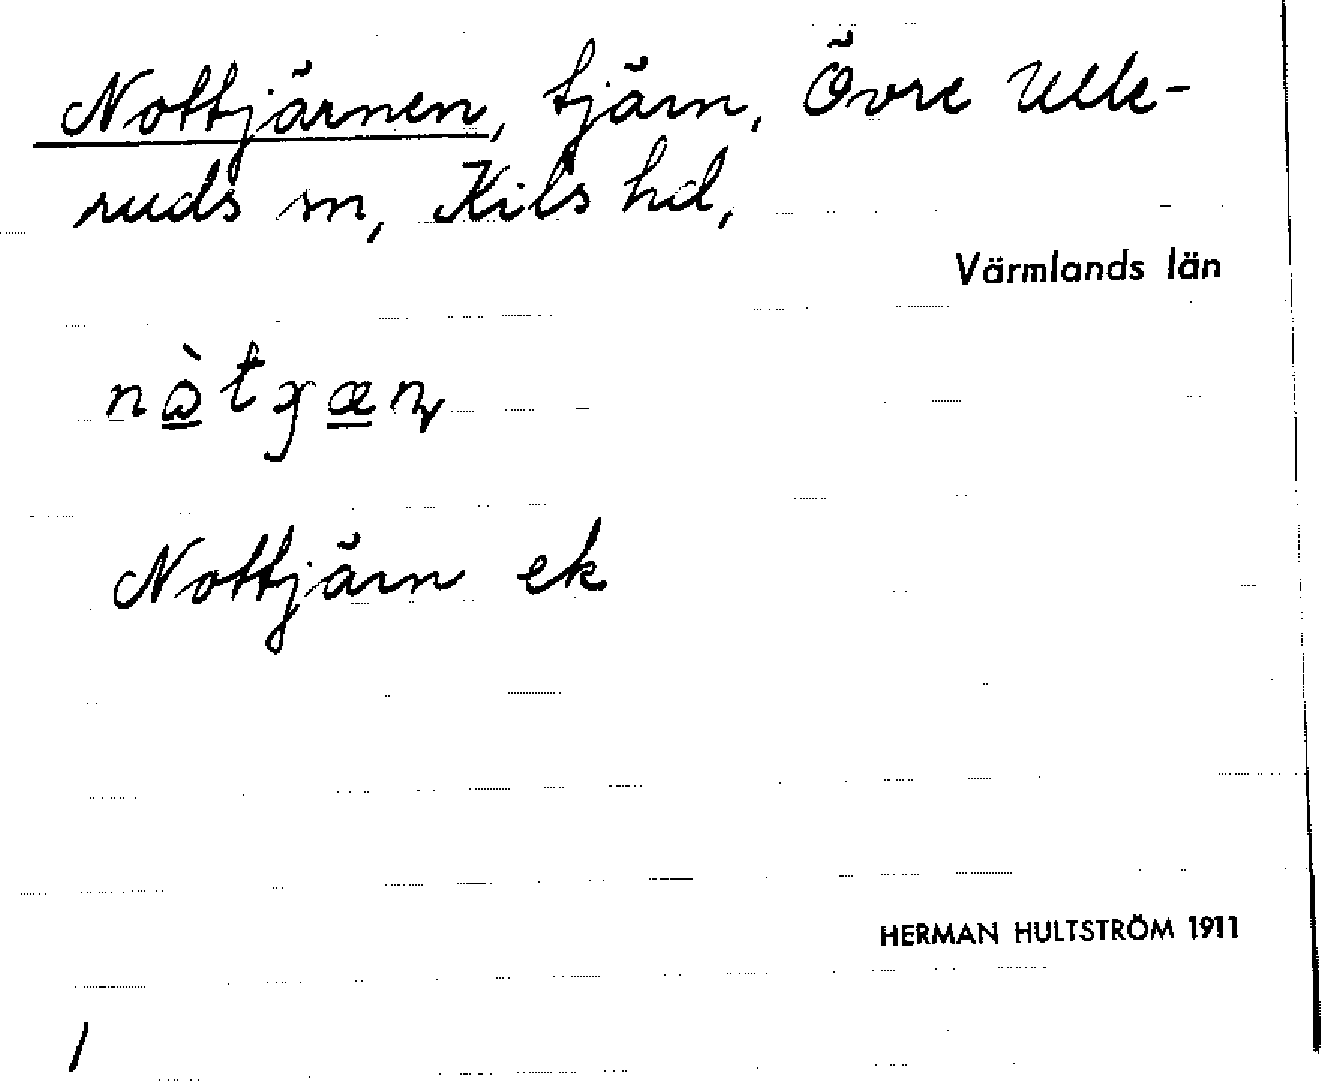 Nottjärnen, tjärn, Övre Ulle-
ruds sn, Kils hd,
Värmlands län
Nottjärn ek
HERMAN HULTSTRÖM 1911